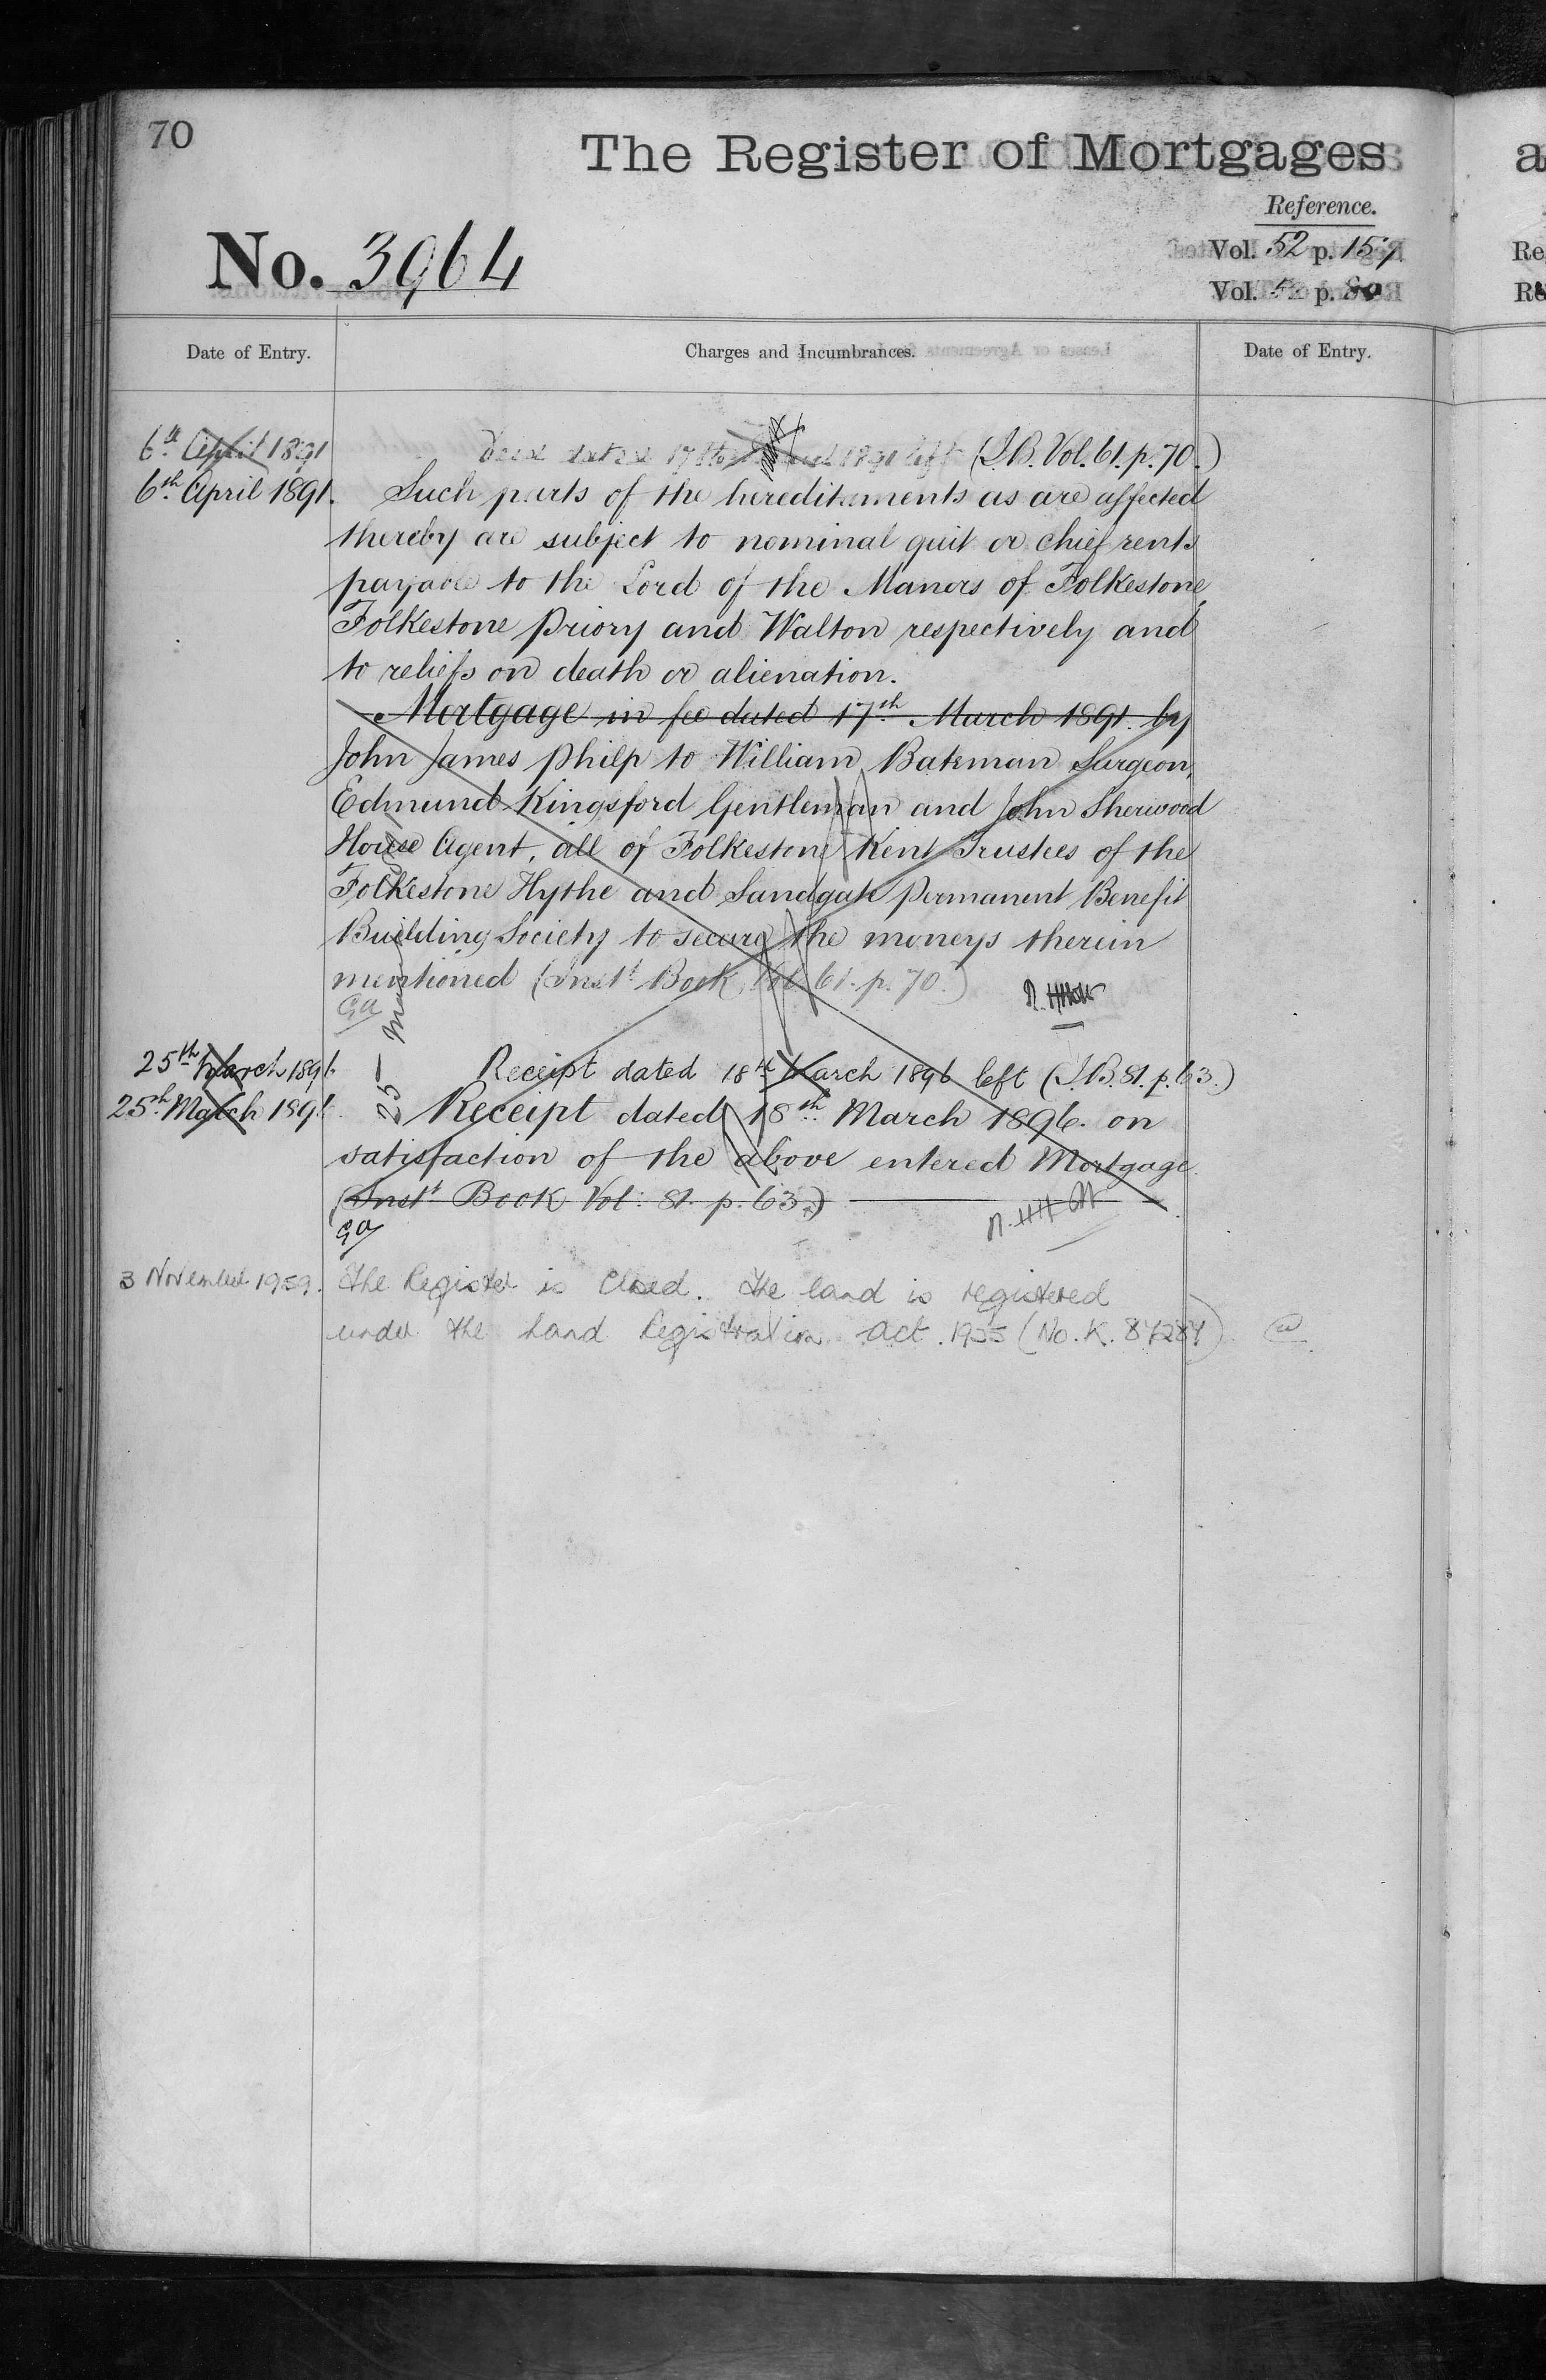 70
The Register of Mortgages
Reference.
No. 3964
Vol. 52 p. 157
Vol. p. 80
Date of Entry.
Charges and Incumbrances.
Date of Entry.
6th April 1891 Deed dated 17th March 1891 left (I.B. Vol. 61. p. 70.)
6th April 1891. Such parts of the hereditaments as are affected
thereby are subject to nominal quit or chief rents
payable to the Lord of the Manors of Folkestone,
Folkestone Priory and Walton respectively and
to reliefs on death or alienation.
Mortgage in fee dated 17th March 1891. by
John James Philp to William Bateman Surgeon,
Edmund Kingsford Gentleman and John Sherwood
House Agent, all of Folkestone Kent Trustees of the
Folkestone Hythe and Sandgate Permanent Benefit
Building Society to secure the moneys therein
mentioned (Inst. Book Vol. 61. p. 70.)
GA
25th March 1896. Receipt dated 18th March 1896 left (I.B. 81. p. 63.)
25th March 1896. Receipt dated 18th March 1896. on
satisfaction of the above entered Mortgage.
(Inst. Book Vol: 81. p. 63.)
GA
3 November 1959. The Register is closed. The land is registered
under the Land Registration Act. 1925 (No. K. 87287)